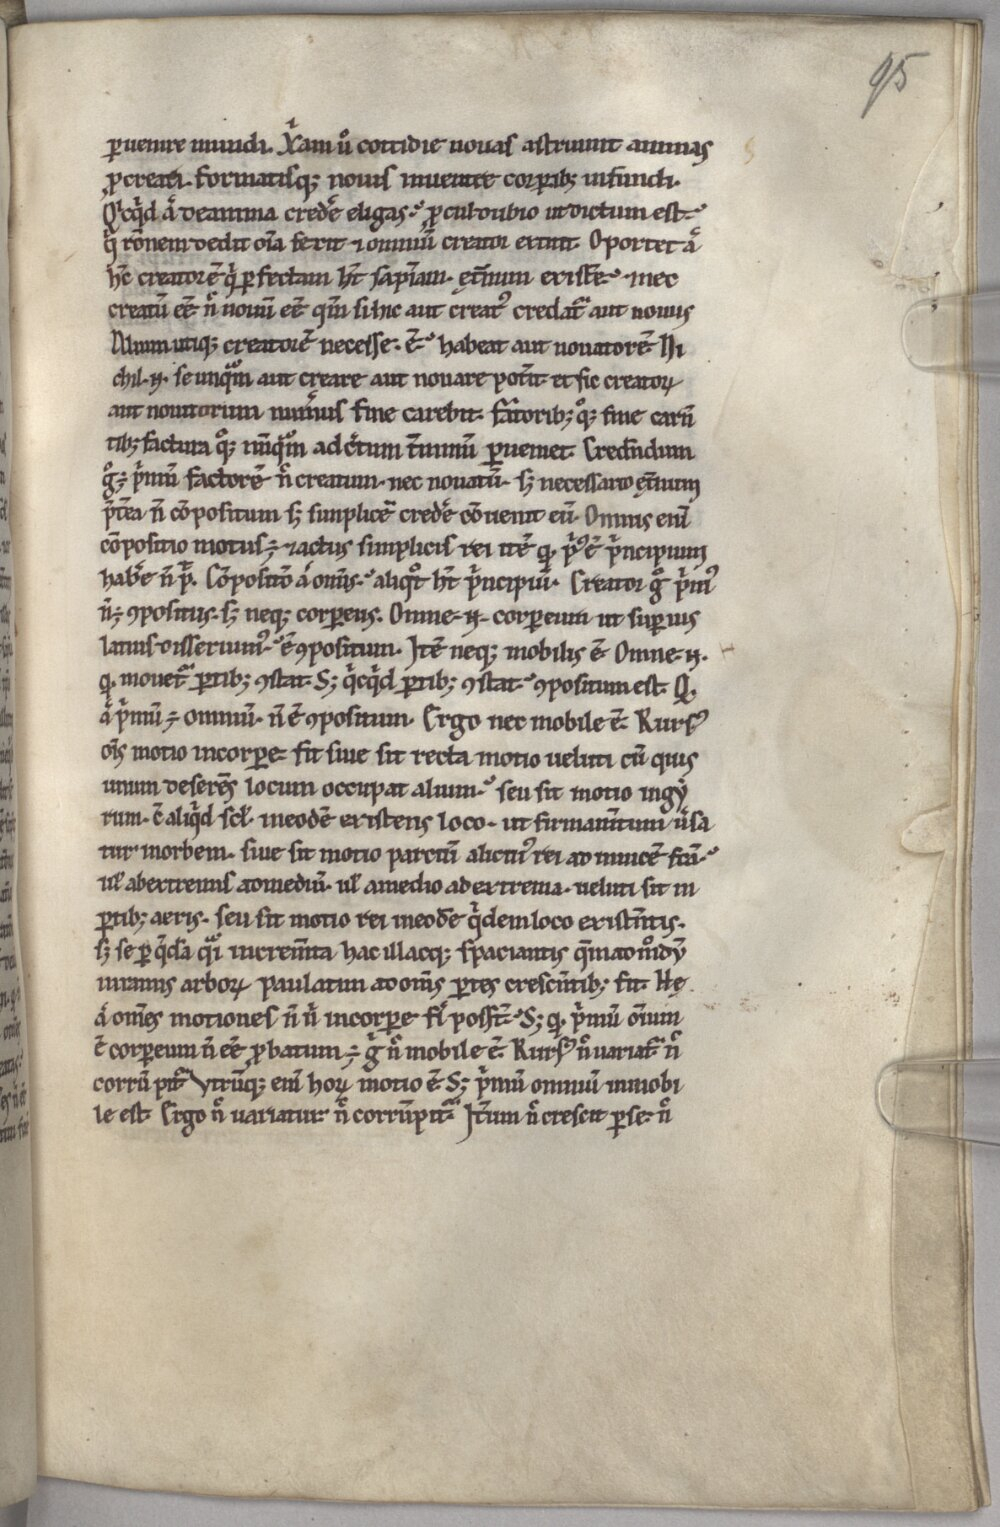 95
ꝑuenire mundi. Xͥam u̾ cottidie nouas astruunt animas
ꝓcreari. formatisqꝫ nouis iuuente corꝑibꝫ infundi.
Qͥcqͥd aͣ de anima credͤe eligas. ꝓcul dubio ut dictum est.
qͥ rōnem dedit oīa fecit ⁊ omniū creator extitit. Oportet aͣ
hc̄ creatorē qͥ ꝑfectam ht̄ sapīam. ęt̄num existe̾. nec
creatū eē n̄ nouū eē qm̄ si hic aut creatꝰ credat᷑ aut nouus
Alium utiqꝫ creatorē necesse. ē. habeat aut nouatorē Ni
chil .n. se unqͣm aut creare aut nouare potit̄. et sic creatoꝝ
aut nouitorum num̄us fine carebit. factoribꝫ qͦꝫ fine carn̄
tibꝫ factura qͦꝫ nūqͣm ad c̄tum t̄minū ꝑueniet. Credn̄dum
gͦ ÷ pͥmū factorē n̄ creatum. nec nouatū. sꝫ necessario ęt̄num
pͥt̄ea n̄ cōpositum sꝫ simplicē credͤe cōuenit eū. Omnis eni̾
cōpositio motus ÷ ⁊ actus simplicis rei itē ꝙ pͥꝰ ē pͥncipium
habͤe n̄ p̄t. Cōpositō aͣ omīs. aliqͦt ht̄ pͥncipiū. Creator gͦ pͥmꝰ
n̄ ÷ ꝯpositus. sꝫ neqꝫ corꝑeus. Omne .n. corꝑeum ut suꝑius
latius disseruimꝰ. ē ꝯpositum. Itē neqꝫ mobilis ē Omne .n.
ꝙ mouet᷑ ꝑtibꝫ ꝯstat. Sꝫ qͥcqͥd ꝑtibꝫ ꝯstat. ꝯpositum est. Ꝙ
aͣ pͥmū ÷ omniū. n̄ ē ꝯpositum. Ergo nec mobile ē. Rursꝰ
oīs motio incorꝑe fit siue sit recta motio ueluti cū quis
unum deserēs locum occupat alium. seu sit motio in gy
rum. c̄ aliqͥd scl̄. in eodē existens loco. ut firmam̄tum u̾sa
tur in orbem. siue sit motio parciū alicuiꝰ rei ad inuicē scā.
ul̄ ab extremis ad mediū. ul̄ a medio ad extrema. ueluti sit in
ꝑtibꝫ aeris. seu sit motio rei in eodē qͥdem loco existn̄tis.
sꝫ se ꝑ qͥda qͣi increm̄ta hac illacqꝫ spaciantis qm̄admͦdū
in ramis arboꝝ paulatim ad om̄s ꝑtes crescn̄tibꝫ fit. Hę
aͣ om̄es motiones n̄ n̄ in corꝑe fi̾i poss̄t. Sꝫ ꝙ pͥmū om̄ium
ē corꝑeum n̄ eē ꝓbatum ÷ gͥ n̄ mobile ē. Rursꝰ n̄ uariat᷑ n̄
corrūpit᷑ Vtrūqꝫ eni̾ hoꝝ motio ē Sꝫ pͥmū omniū inmobi
le est. Ergo n̄ uariatur n̄ corrūpit᷑ It̄um n̄ crescit ꝑ se n̄